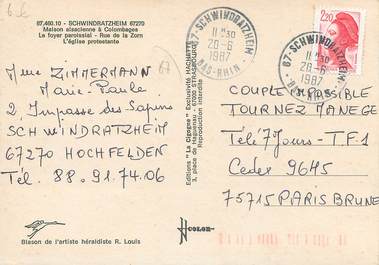 87.460.10 - SCHWINDRATZHEIM 67270
Maison alsacienne à Colombages
Le foyer paroissial - Rue de la Zorn
L'église protestante
Mme ZIMMERMANN
Marie-Paule
2, Impasse des Sapins
SCHWINDRATZHEIM
67270 HOCHFELDEN
Tél. 88.91.74.06
Blason de l'artiste héraldiste R. Louis
Editions "La Cigogne" Exclusivité HACHETTE
3, place de Haguenau - 67000 STRASBOURG
Reproduction interdite
COLOR
67-SCHWINDRATZHEIM
11 H 30
20-6
1987
BAS-RHIN
67-SCHWINDRATZHEIM
11 H 30
20-6
1987
2,20
67
COUPLE IMPOSSIBLE
TOURNEZ MANEGE
Télé 7 Jours - T.F.1
Cedex 9645
75715 PARIS BRUNE